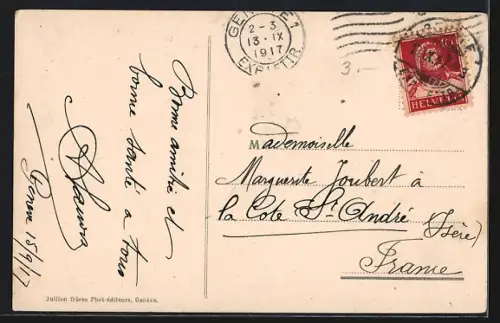 Bonne amitié et
bonne santé à tous
Genève 15/9/17
GENÈVE 1
2-3
13·IX
1917
EXP. LETTR
3.—
10
HELVETIA
Mademoiselle
Marguerite Joubert à
la Côte St André
(Isère)
France
Jullien frères Phot-éditeurs, Genève.